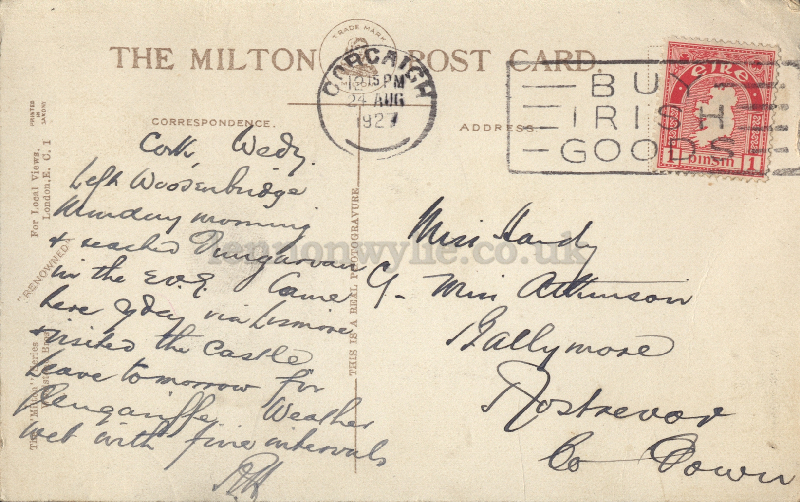 TRADE MARK
THE MILTON POST CARD.
CORCAIGH
12.15 PM
24 AUG
1927
BUY
IRISH
GOODS
éire
1 pinsin 1
CORRESPONDENCE.
ADDRESS
Cork, Wedy.
Left Woodenbridge
Monday morning
& reached Dungarvan
in the evg. Came
here yday via Lismore
& visited the Castle
Leave tomorrow for
Glengariffe Weather
wet with fine intervals
Miss Handy
C/- Miss Atkinson
Ballymore
Rostrevor
Co Down
THIS IS A REAL PHOTOGRAVURE
PRINTED IN SAXONY
For Local Views,
London, E. C. 1
"RENOWNED"
The "Milton" Series
lennonwylie.co.uk